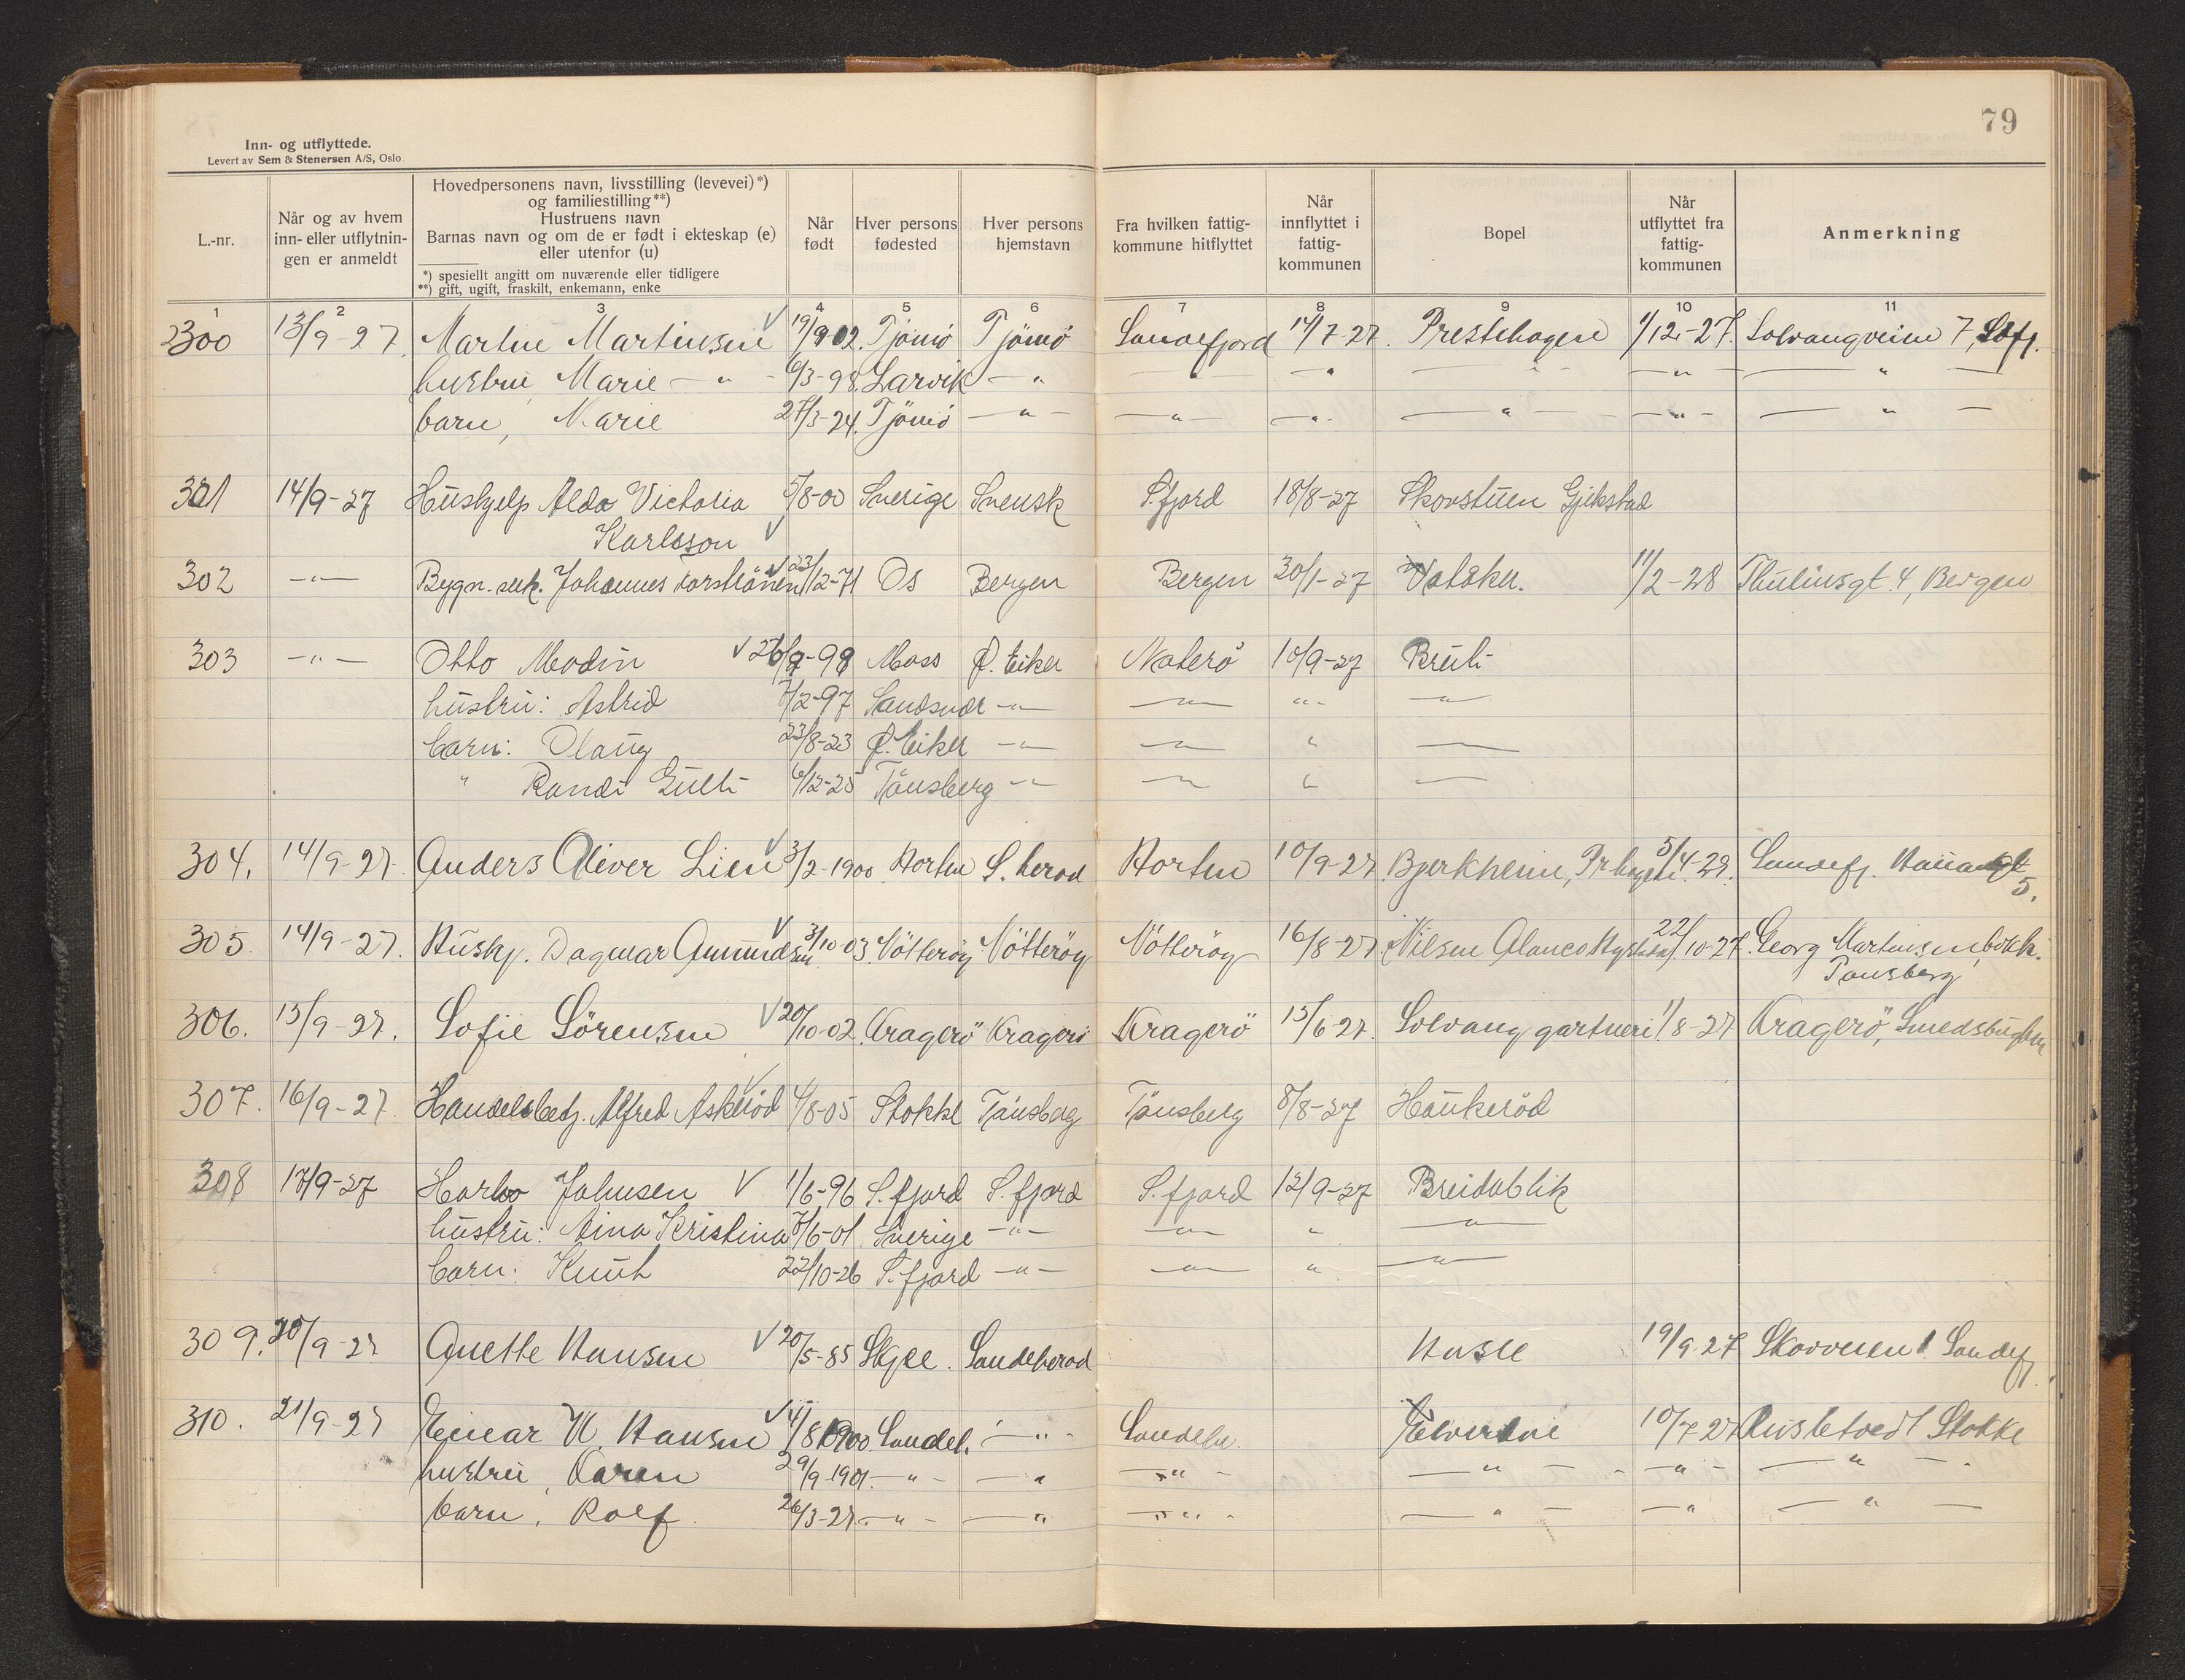 79
Inn- og utflyttede.
Levert av Sem & Stenersen A/S, Oslo
L.-nr. | Når og av hvem inn- eller utflytningen er anmeldt | Hovedpersonens navn, livsstilling (levevei)*) og familiestilling**) Hustruens navn Barnas navn og om de er født i ekteskap (e) eller utenfor (u) *) spesiellt angitt om nuværende eller tidligere **) gift, ugift, fraskilt, enkemann, enke | Når født | Hver persons fødested | Hver persons hjemstavn | Fra hvilken fattigkommune hitflyttet | Når innflyttet i fattigkommunen | Bopel | Når utflyttet fra fattigkommunen | Anmerkning
1 2 3 4 5 6 7 8 9 10 11
300 13/9-27 Martin Martinsen 19/9 02. Tjömö Tjömö Sandefjord 14/7-27. Prestehagen 1/12-27. Solvangveien 7, Sdfj.
hustru, Marie — " — 6/3-98. Larvik — " — " — " — " — " — "
barn, Marie 27/3-24. Tjömö — " — " — " — " — " — "
301 14/9-27 Hushjelp Alda Victoria 5/8-00 Sverige Svensk S.fjord 18/8-27 Skovstuen Gjekstad
Karlsson
302 — " — Bygn. sek. Johannes 23/12-71 Os Bergen Bergen 30/1-27 11/2-28 Thulinsgt. 4, Bergen
303 — " — Otto Modin 26/9-98 Moss Ø. Eiker Nøterø 10/9-27
hustru: Astrid 7/2-97 Sandsvær — " — " — " — "
barn: Olaug 23/8-23 Ø. Eiker — " — " — " — "
" Randi 6/12-25 Tönsberg — " — " — " — "
304. 14/9-27. Anders Oliver Lien 3/2-1900 Horten S. herad Horten 10/9-27 Bjerkheim, Pr.hagen 5/4-29. Sandefj.
5.
305. 14/9-27. Hushj. Dagmar Amundsen 3/10-03. Nötteröy Nötteröy Nötteröy 16/8-27. Nilsen 22/10-27. Georg Martinsen,
Tønsberg
306. 15/9-27. Sofie Sörensen 20/10-02. Kragerö Kragerö Kragerö 15/6-27. Solvang gartneri 1/8-27 Kragerö, Smedsbugten
307. 16/9-27. Handelsbetj. Alfred Askeröd 4/8-05 Stokke Tönsberg Tönsberg 8/8-27 Haukeröd
308 17/9-27 Johnsen 1/6-96 S.fjord S.fjord S.fjord 12/9-27 Breidablik
hustru: Aina Kristina 7/6-01 Sverige — " — " — " — "
barn: Knut 22/10-26 S.fjord — " — " — " — "
309. 20/9-27 Anette Hansen 20/5-85 Skjee. Sandeherad Hasle 19/9 27 Skovveien 1. Sandefj.
310. 21/9-27 Einar H. Hansen 4/8 1900. Sandeh. — " — Sandeh. 10/7-27 Stokke
hustru, Karen 29/9-1901. — " — " — " — " — " — "
barn, Rolf. 26/3-27. — " — " — " — " — " — "